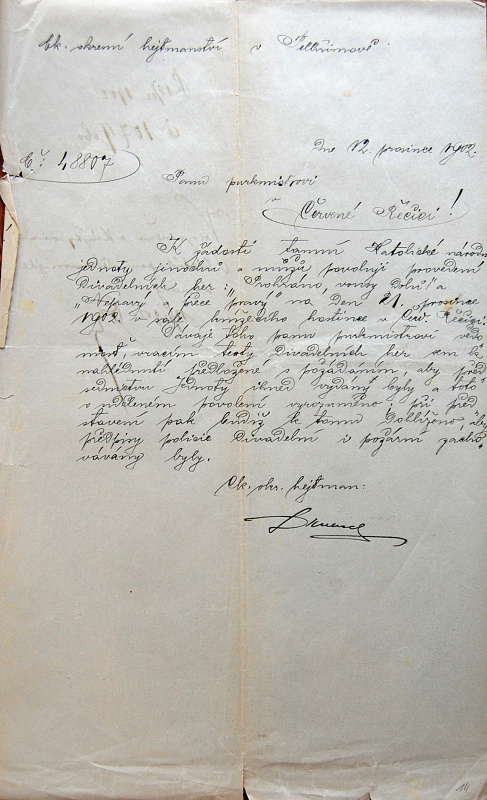 Ck. okresní hejtmanství v Pelhřimově
Dne 12. prosince 1902.
Č: 48807
Panu purkmistrovi
v
Červené Řečici!
K žádosti tamní Katolické národní
jednoty jinochů a mužů povoluji provedení
divadelních her: „Prohráno, vousy dolů! a
„Nepravý a přece pravý" na den 21. prosince
1902 v sále hostince v Červ. Řečici.
Dávaje toho panu purkmistrovi vědo-
most, vracím texty divadelních her sem k
nahlédnutí předložené s požádáním, aby před-
sednictvu jednoty ihned vydány byly a toto
o uděleném povolení vyrozuměno při před-
stavení pak budiž k tomu dohlíženo, aby
předpisy policie divadelní i požární zacho-
vávány byly.
Ck. okr. hejtman:
14